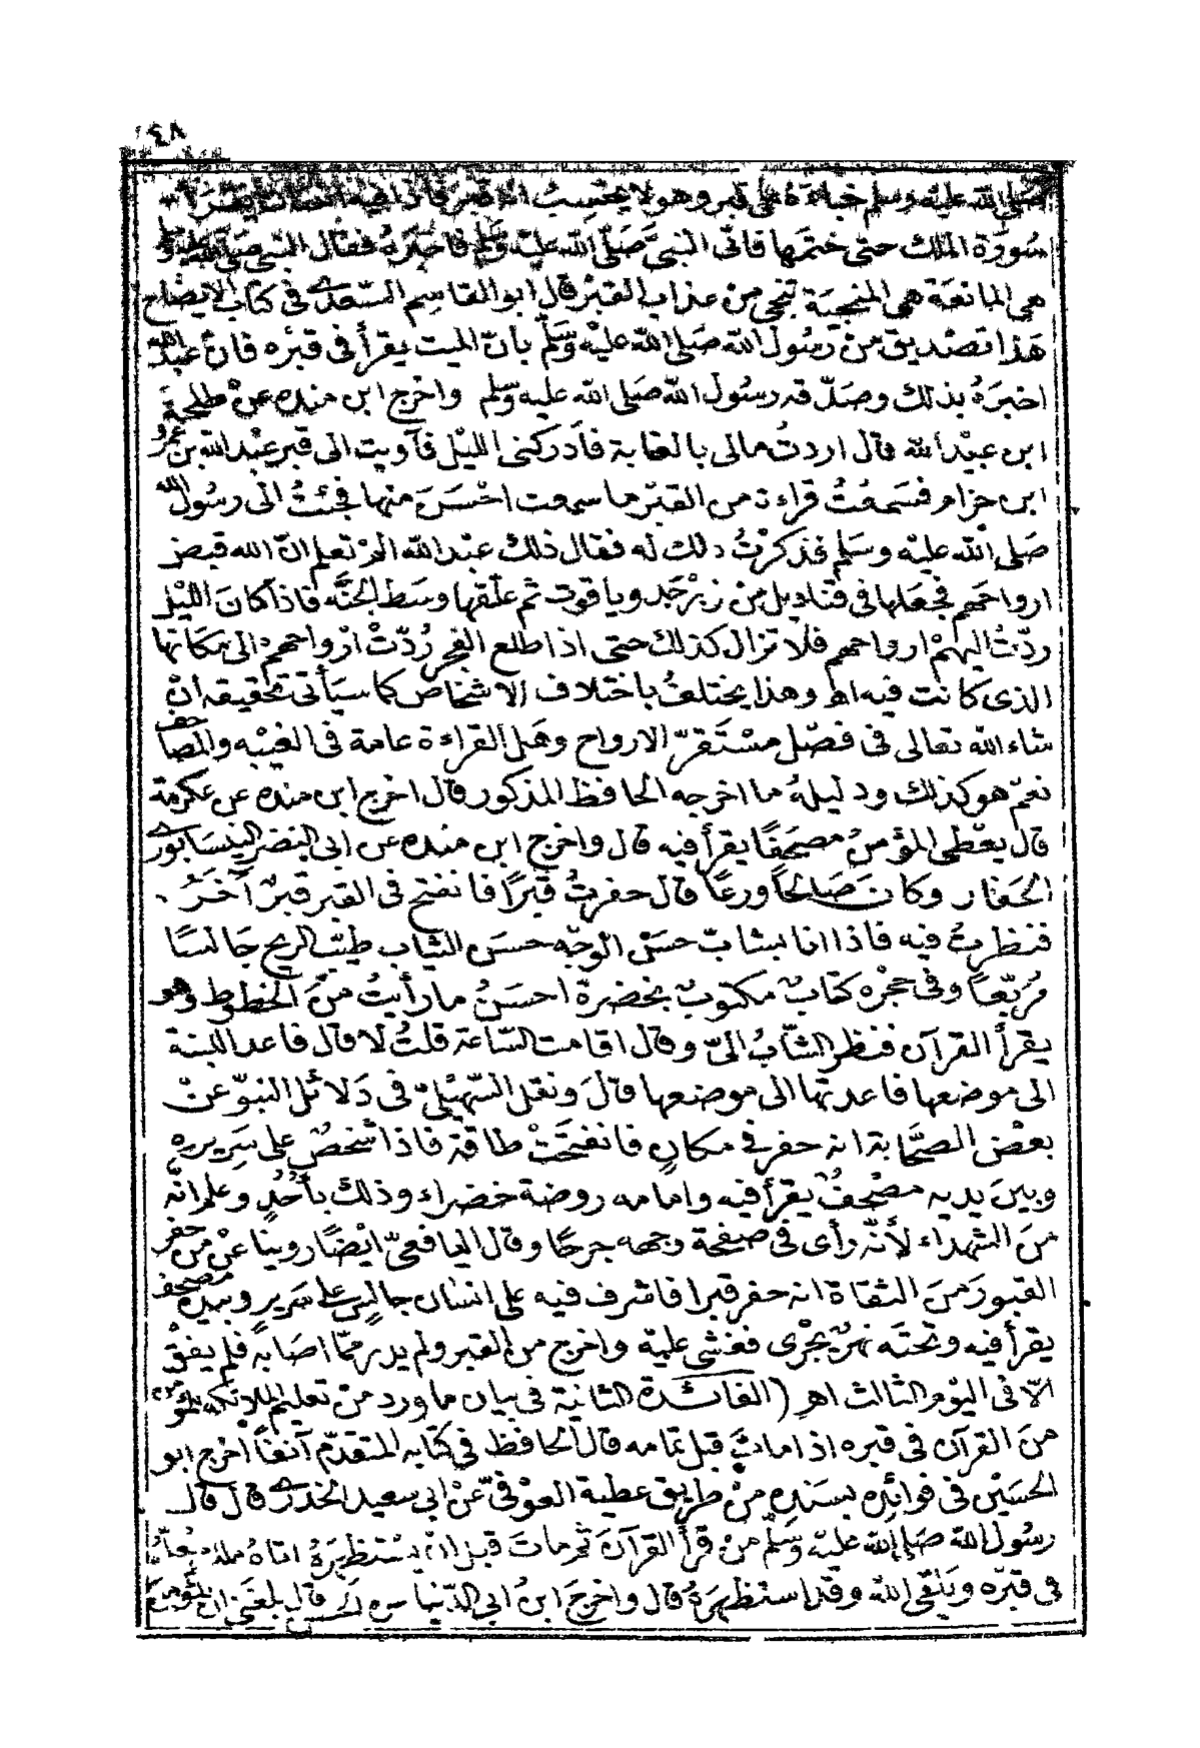 ٤٨
صلى الله عليه وسلم خباءه على قبر وهو لا يحتسب انه قبر فاذا فيه انسان يقرأ
سورة الملك حتى ختمها فاتى النبي صلى الله عليه وسلم فاخبره فقال النبي صلى الله عليه وسلم
هي المانعة هي المنجية تنجي من عذاب القبر قال ابو القاسم السعدي في كتاب الايضاح
هذا تصديق من رسول الله صلى الله عليه وسلم بان الميت يقرأ في قبره فان عبد الله
اخبره بذلك وصدّقه رسول الله صلى الله عليه وسلم واخرج ابن منده عن طلحة
ابن عبيد الله قال اردت مالي بالغابة فأدركني الليل فآويت الى قبر عبد الله بن عمرو
ابن حزام فسمعت قراءة من القبر ما سمعت احسن منها فجئت الى رسول الله
صلى الله عليه وسلم فذكرت ذلك له فقال ذلك عبد الله الم تعلم انّ الله قبض
ارواحهم فجعلها في قناديل من زبرجد وياقوت ثم علقها وسط الجنّة فاذا كان الليل
ردّت اليهم ارواحهم فلا تزال كذلك حتى اذا طلع الفجر رُدّت ارواحهم الى مكانها
الذى كانت فيه اهـ وهذا يختلف باختلاف الاشخاص كما سيأتي تحقيقه ان
شاء الله تعالى في فصل مستقرّ الارواح وهل القراءة عامة في الغيب والمصاحف
نعم هو كذلك ودليله ما اخرجه الحافظ المذكور قال اخرج ابن منده عن عكرمة
قال يعطى المؤمن مصحفًا يقرأ فيه قال واخرج ابن منده عن ابي النضر النيسابوري
الحفار وكان صالحًا ورعًا قال حفرت قبرًا فانفتح في القبر قبر آخر
فنظرت فيه فاذا انا بشابّ حسن الوجه حسن الثياب طيّب الريح جالسًا
مُربّعًا وفي حجره كتاب مكتوب بخضرة احسن ما رأيت من الخطوط وهو
يقرأ القرآن فنظر الشابّ اليّ وقال اقامت الساعة قلت لا قال فاعد اللبنة
الى موضعها فاعدتها الى موضعها قال ونقل السّهيليّ في دلائل النبوّ عن
بعض الصحابة انه حفر في مكان فانفتحت طاقة فاذا شخص على سريره
وبين يديه مصحف يقرأ فيه وامامه روضة خضراء وذلك بأُحُدٍ وعلم انّه
من الشهداء لأنّه رأى في صفحة وجهه جرحًا وقال اليافعيّ ايضًا روينا عن من حفر
القبور من الثقاة انه حفر قبرا فاشرف فيه على انسان جالس على سرير وبيده مصحف
يقرأ فيه وتحته نهر يجرى فغشي عليه واخرج من القبر ولم يدر ممّا اصابه فلم يفق
الّا في اليوم الثالث اهـ (الفائدة الثانية في بيان ما ورد من تعليم الملائكة المؤمن
من القرآن في قبره اذا مات قبل تمامه قال الحافظ في كتابه المتقدّم آنفًا اخرج ابو
الحسين في فوائده بسنده من طريق عطية العوفيّ عن ابي سعيد الخدري قال قال
رسول الله صلى الله عليه وسلّم من قرأ القرآن ثم مات قبل ان يستظهره اتاه ملك يعلّمه
في قبره ويلقى الله وقد استظهره قال واخرج ابن ابي الدنيا قال بلغني ان المؤمن